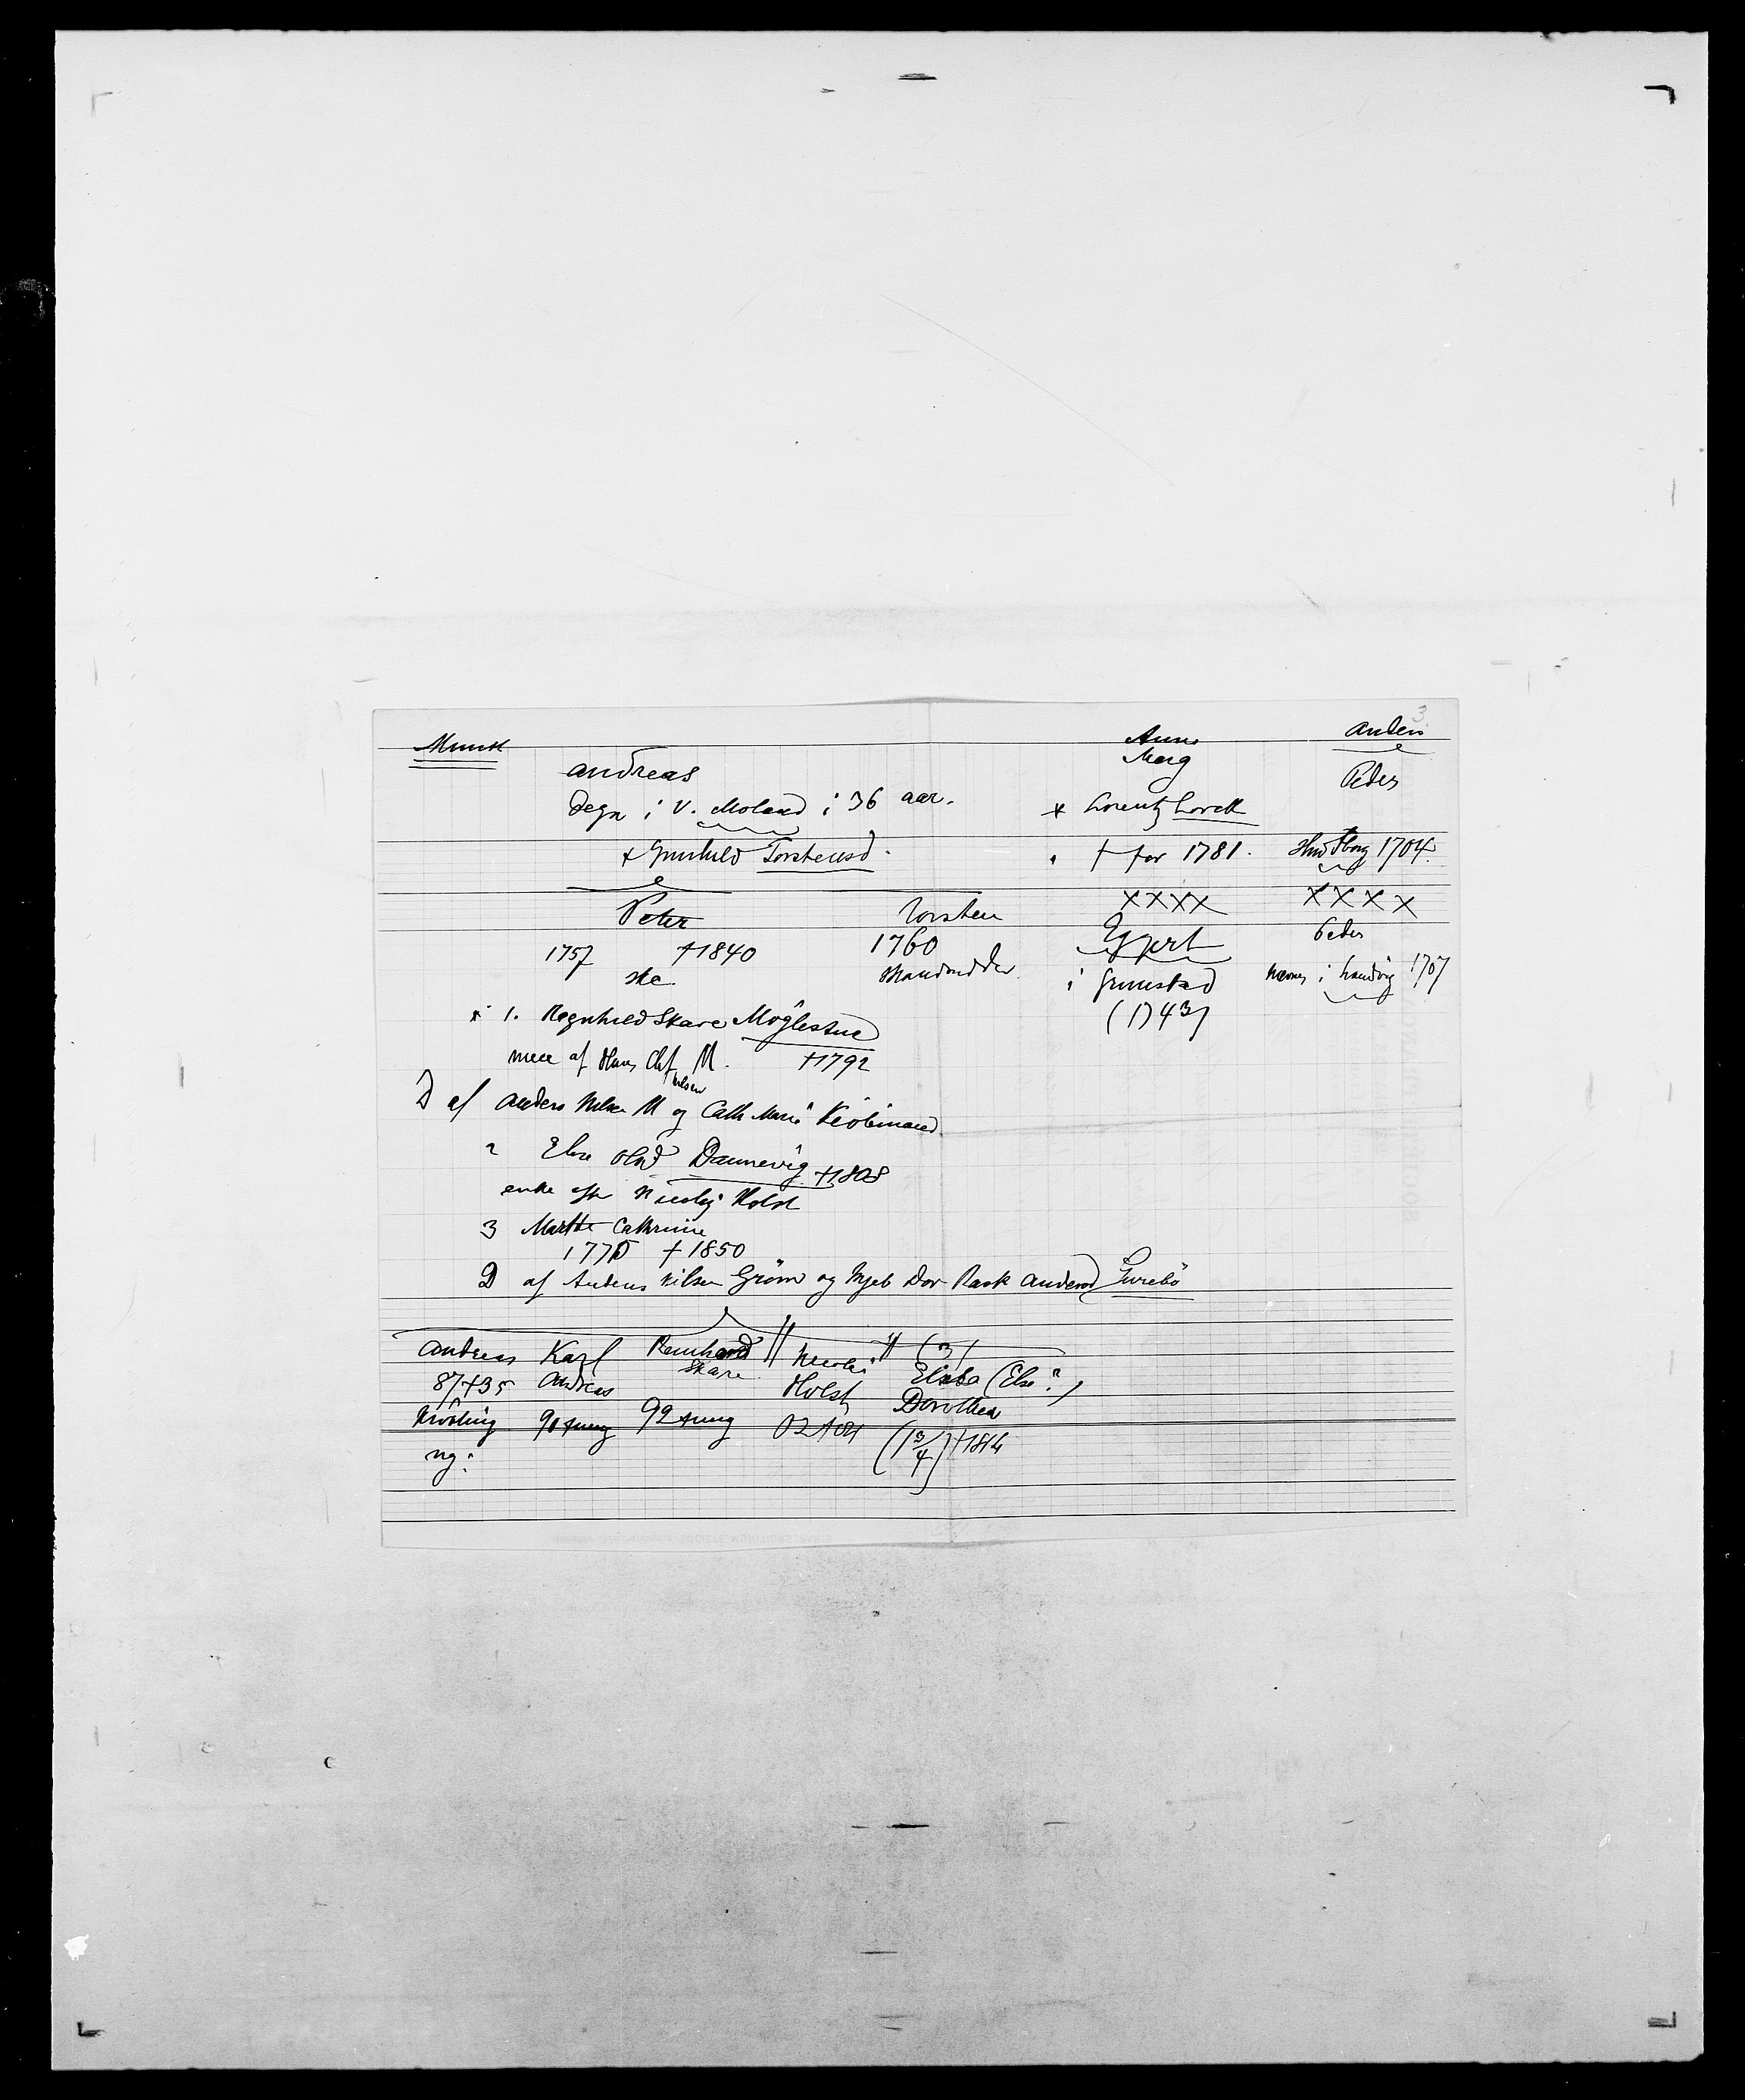 3.
Munk
Andreas
Degn i V. Moland i 36 aar.
x Gunhild Torstensd.
Anne
Marg
x Lorentz Lorck
† før 1781.
Anders
Peder
1704
Peter
1757 †1840
ske.
Torsten
1760
xxxx
Eggert
i Grimstad
(1743)
xxxx
Peder
i Landvig 1707
x 1. Ragnhild Skare Møglestue
niece af Hans Chf M. †1792
Nilsen
D af Anders Nilsen M og Cath Marie
2 Else Olsd Dannevig †1808
enke eft Nicolaj Holst
3 Marthe Cathrine
1775 † 1850
D af Anders Nilsen Grøm og Ingeb Dor Rask Andersd
Andreas
87†35
ng:
Karl
Andreas
90 † ung
Reinhard
Skare
92 † ung
Nicolai
Holst
02
(3)
Elisba (Else?)
Dorothea
(13/4) †1814